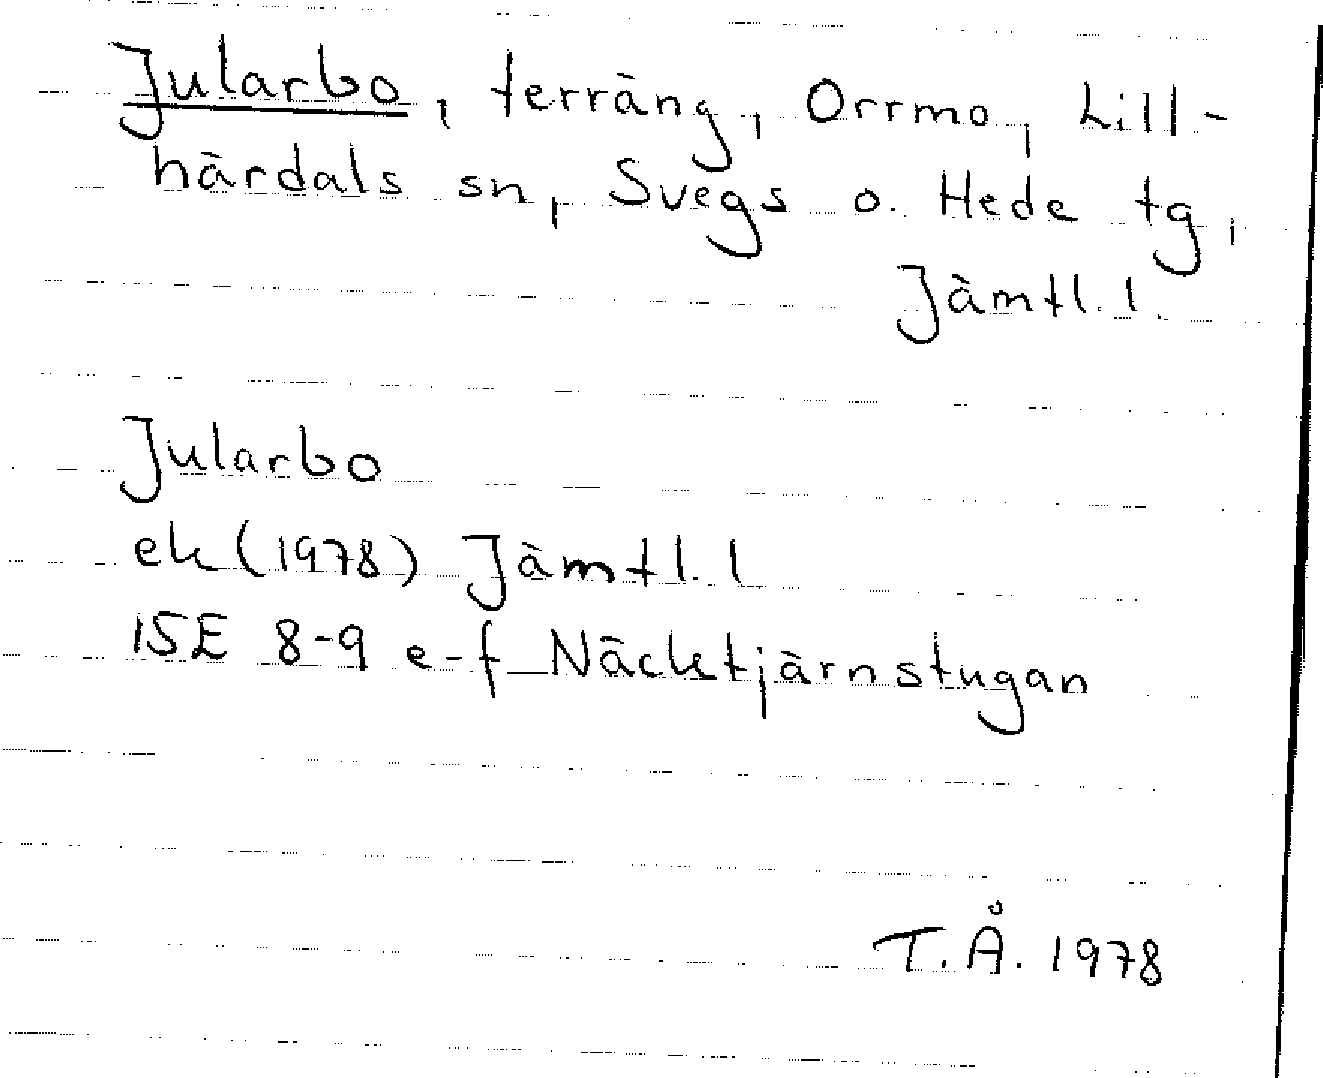 Jularbo, terräng, Orrmo, Lill-
härdals sn, Svegs o. Hede tg,
Jämtl. l.
Jularbo
ek (1978) Jämtl. l
15E 8-9 e-f Näcktjärnstugan
T.Å. 1978